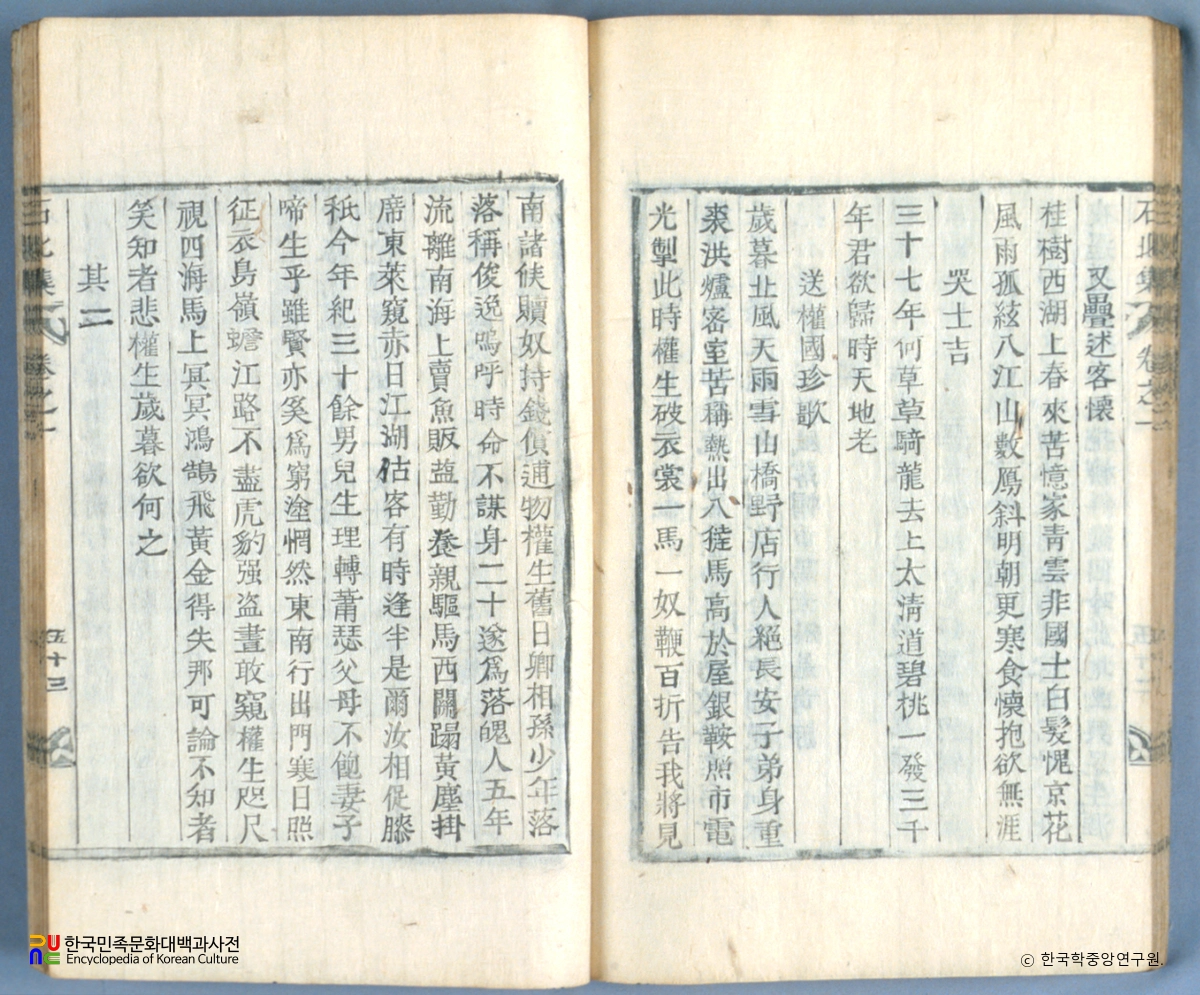 石北集 卷之二
又疊述客懷
桂樹西湖上春來苦憶家靑雲非國士白髮愧京花
風雨孤絃八江山數鴈斜明朝更寒食懷抱欲無涯
哭士吉
三十七年何草草騎龍去上太淸道碧桃一發三千
年君欲歸時天地老
送權國珍歌
歲暮北風天雨雪山橋野店行人絕長安子弟身重
裘洪爐密室苦稱熱出入徒馬高於屋銀鞍照市電
光掣此時權生破衣裳一馬一奴鞭百折告我將見
南諸俠贖奴持錢償逋物權生舊日卿相孫少年落
落稱俊逸嗚呼時命不謀身二十遂爲落魄人五年
流離南海上賣魚販鹽勤養親驅馬西關蹋黃塵掛
席東萊窺赤日江湖估客有時逢半是爾汝相促膝
秪今年紀三十餘男兒生理轉蕭瑟父母不飽妻子
啼生乎雖賢亦奚爲窮塗惘然東南行出門寒日照
征衣鳥嶺蟾江路不盡虎豹强盜晝敢窺權生咫尺
視四海馬上冥冥鴻鵠飛黃金得失那可論不知者
笑知者悲權生歲暮欲何之
其二
石北集 卷之二
五十三
한국민족문화대백과사전
Encyclopedia of Korean Culture
ⓒ 한국학중앙연구원.